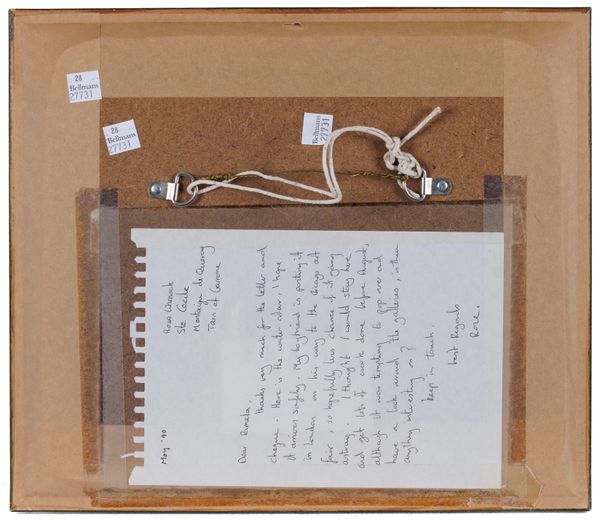 28
Bellmans
27731
28
Bellmans
27731
Bellmans
27731
Rose Warnock
Ste Cecile
Montaigu de Quercy
Tarn et Garonne
May '90
Dear Pamela,
thanks very much for the letter and
cheque. Here is the water-color. I hope
it arrives safely. My boyfriend is posting it
in London on his way to the Chicago art
fair, so hopefully less chance of it going
astray. I thought I would stay here
and get lots of work done before August,
although it was tempting to pop over and
have a look round the galleries, is there
anything interesting on?
keep in touch.
best regards
Rose.